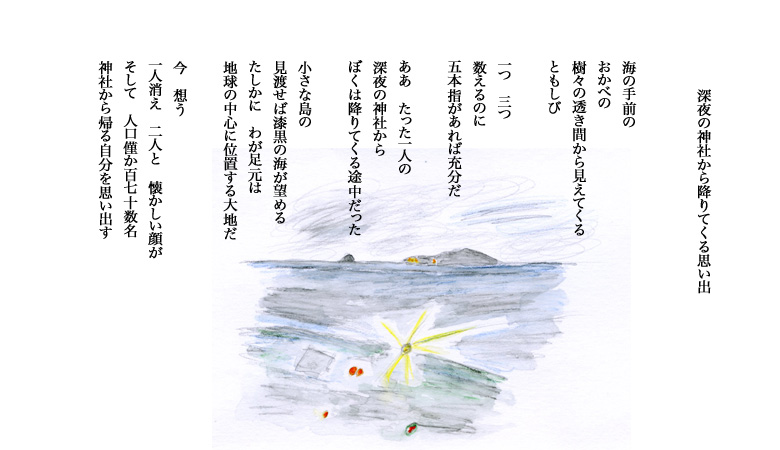 深夜の神社から降りてくる思い出
海の手前の
おかべの
樹々の透き間から見えてくる
ともしび
一つ　三つ
数えるのに
五本指があれば充分だ
ああ　たった一人の
深夜の神社から
ぼくは降りてくる途中だった
小さな島の
見渡せば漆黒の海が望める
たしかに　わが足元は
地球の中心に位置する大地だ
今　想う
一人消え　二人と　懐かしい顔が
そして　人口僅か百七十数名
神社から帰る自分を思い出す